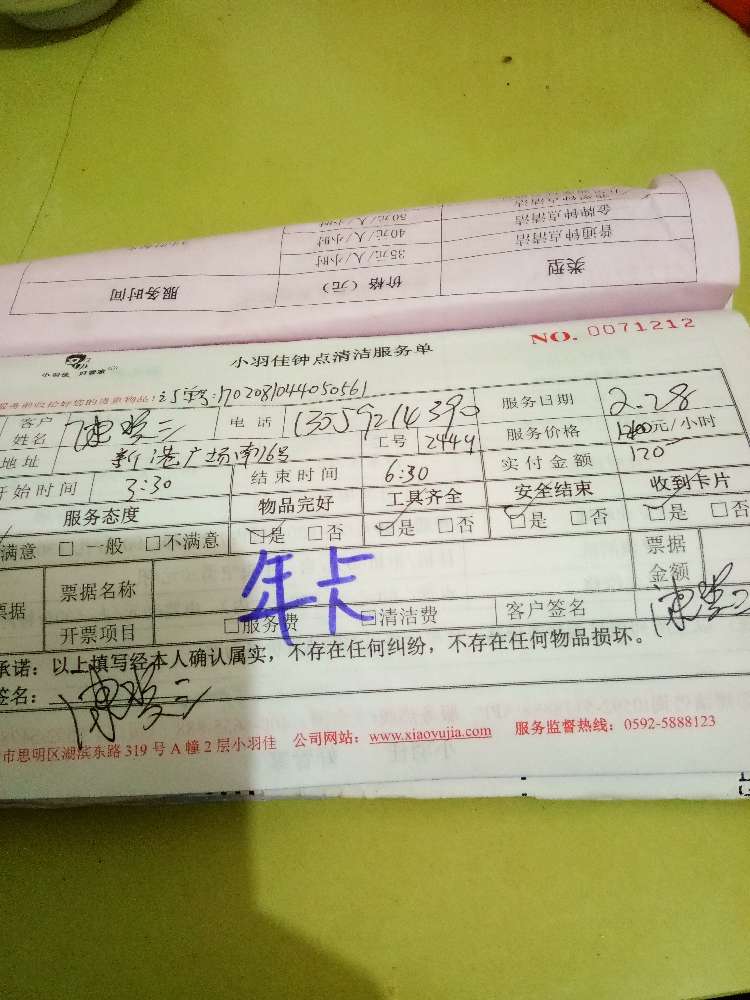 服务时间 价格（元） 类型
35元/人/小时 普通钟点清洁
40元/人/小时 金牌钟点清洁
50元/人/小时
NO. 0071212
小羽佳 好管家
小羽佳钟点清洁服务单
服务前收拾好您的贵重物品! 订单号:1702081044050561
客户姓名 电话 13559214390 服务日期 2.28
地址 新港广场南16号 工号 2444 服务价格 元/小时
开始时间 3:30 结束时间 6:30 实付金额 120
服务态度 物品完好 工具齐全 安全结束 收到卡片
满意 □ 一般 □不满意 □是 □否 □是 □否 □是 □否 □是 □否
票据 票据名称 年卡 票据金额
开票项目 □服务费 □清洁费 客户签名
承诺：以上填写经本人确认属实，不存在任何纠纷，不存在任何物品损坏。
签名：
市思明区湖滨东路 319 号 A 幢 2 层小羽佳 公司网站：www.xiaoyujia.com 服务监督热线：0592-5888123